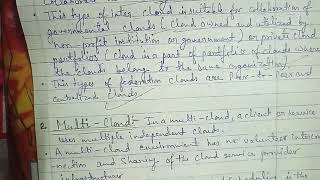 This type of inter cloud is suitable for collaboration of
governmental clouds (cloud owned and utilized by
non-profit institution or government) or private cloud
portfolios (cloud is a part of portfolio of clouds where
the clouds belong to the same organization).
This types of federation clouds are Peer-to-Peer and
centralized clouds.
2. Multi-Cloud:- In a multi-cloud, a client or service
uses multiple independent clouds.
A multi-cloud environment has no volunteer interconn
-ection and sharing of the cloud service provider
infrastructure
is the